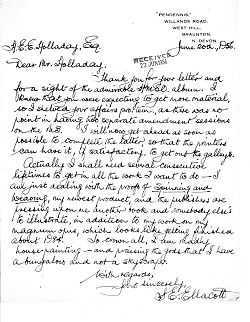 "PENDENNIS"
WILLANDS ROAD,
WEST HILL,
BRAUNTON,
N. DEVON
June 20th, 1956.
A.E.E. Holladay, Esq.
RECEIVED
22 JUN 1956
Dear Mr. Holladay,
Thank you for your letter and
for a sight of the admirable M.S. album. I
knew that you were expecting to get more material,
so I delayed your affairs protem, as there was no
point in having two separate amendment sessions
on the M.S. I will now get ahead as soon as
possible to complete the latter, so that the printers
can have it, if satisfactory, to get out the galleys.
Actually I shall need several consecutive
lifetimes to get in all the work I want to do — I
am just dealing with the proofs of Spinning and
Weaving, my newest product, and the publishers are
pressing upon me another book and somebody else's
to illustrate, in addition to my work on my
magnum opus, which looks like getting finished
about 1984. To crown all, I am busy
housepainting — and praising the gods that I have
a bungalow and not a skyscraper.
With regards,
Yours sincerely,
S.E. Ellacott